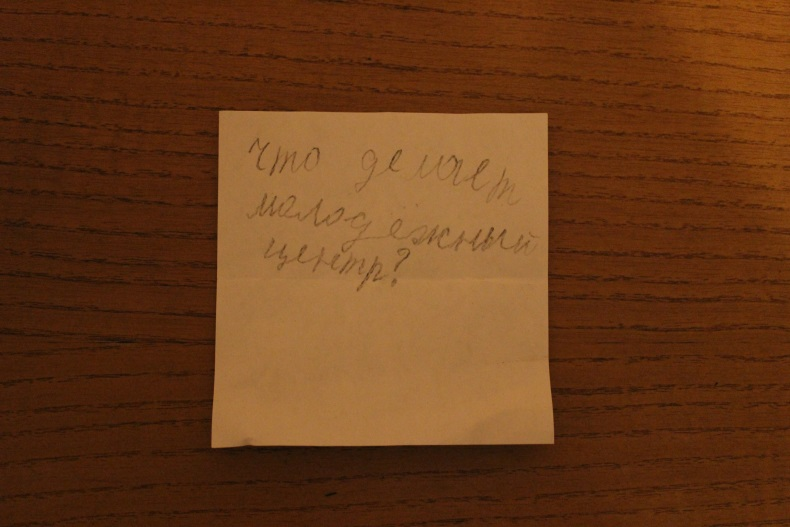 Что делает
молодёжный
центр?